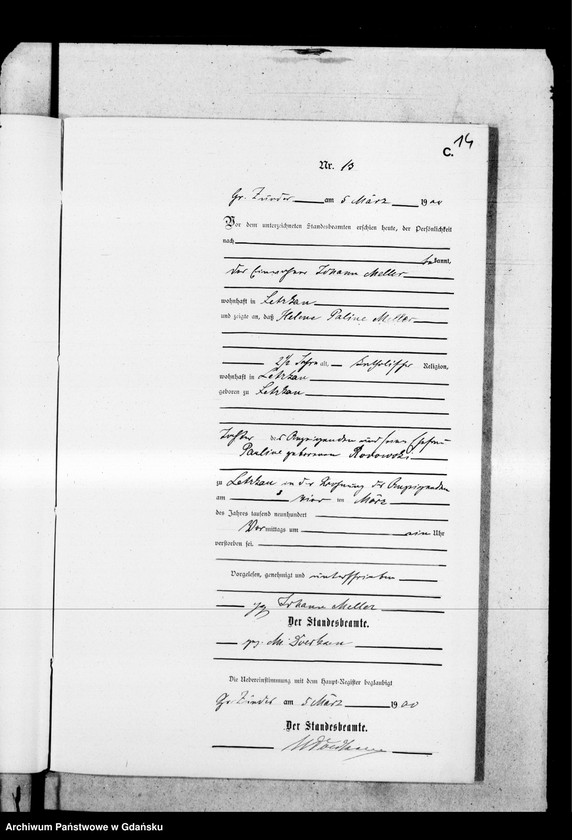 14
C.
Nr. 13
Gr. Zünder am 5 März 1900
Vor dem unterzeichneten Standesbeamten erschien heute, der Persönlichkeit
nach
bekannt,
der Einwohner Johann Meller
wohnhaft in Letzkau
und zeigte an, daß Helene Paline Meller
2 1/2 Jahre alt, katholischer Religion,
wohnhaft in Letzkau
geboren zu Letzkau
Tochter des Anzeigenden und seiner Ehefrau
Pauline geborenen
zu Letzkau in der Wohnung des Anzeigenden
am vier ten März
des Jahres tausend neunhundert
Vormittags um ein Uhr
verstorben sei.
Vorgelesen, genehmigt und unterschrieben
gez Johann Meller
Der Standesbeamte.
gez.
Die Uebereinstimmung mit dem Haupt-Register beglaubigt
Gr. Zünder am 5 März 1900
Der Standesbeamte.
Archiwum Państwowe w Gdańsku